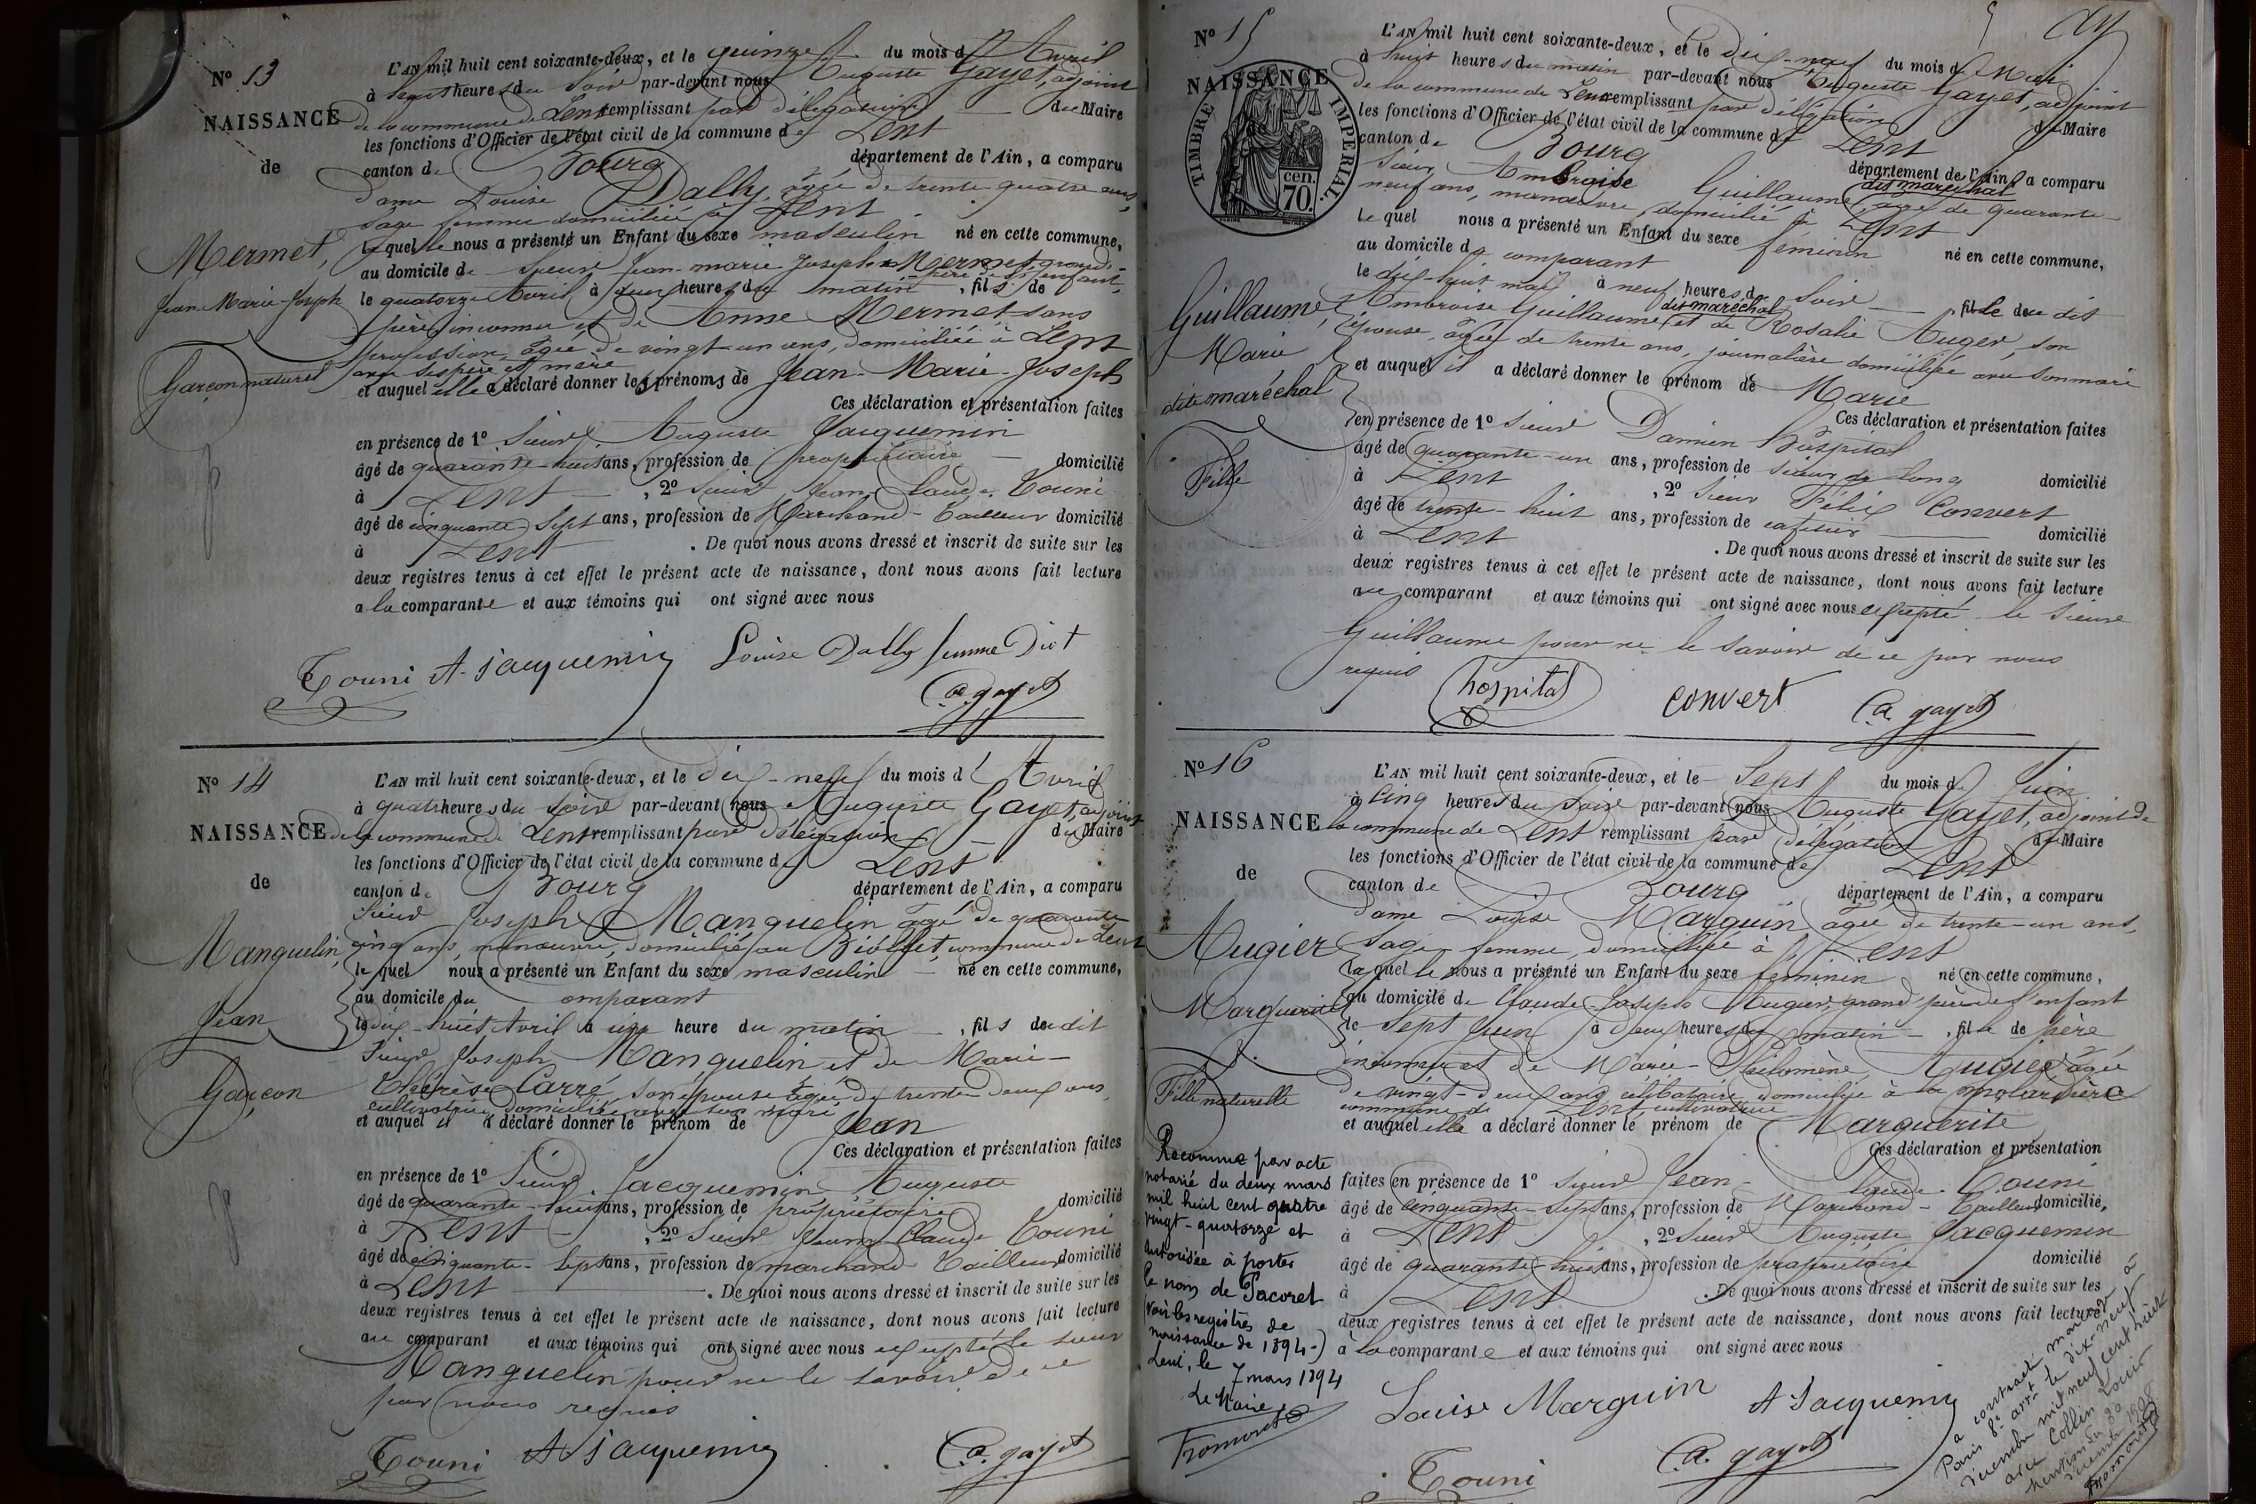 N° 13
NAISSANCE
de
Mermet,
Jean Marie Joseph
Garçon naturel
L'AN mil huit cent soixante-deux, et le quinze du mois d'Avril
à sept heures du soir par-devant nous Auguste Gayet, adjoint
de la commune de Lent remplissant par délégation du Maire
les fonctions d'Officier de l'état civil de la commune de Lent
canton de Bourg département de l'Ain, a comparu
Dame Louise Dally, âgée de trente quatre ans,
sage femme domiciliée à Lent
laquelle nous a présenté un Enfant du sexe masculin né en cette commune,
au domicile de Sieur Jean-marie Joseph Mermet grand-
père de l'enfant,
le quatorze Avril à deux heures du matin, fils de
père inconnu et de Anne Mermet sans
profession, âgée de vingt-un ans, domiciliée à Lent
avec ses père et mère
et auquel elle a déclaré donner les prénoms de Jean-Marie-Joseph
Ces déclaration et présentation faites
en présence de 1° Sieur Auguste Jacquemin
âgé de quarante-huit ans, profession de propriétaire domicilié
à Lent, 2° Sieur Jean Claude Touni
âgé de cinquante-sept ans, profession de Marchand-Tailleur domicilié
à Lent. De quoi nous avons dressé et inscrit de suite sur les
deux registres tenus à cet effet le présent acte de naissance, dont nous avons fait lecture
a la comparante et aux témoins qui ont signé avec nous
Touni A. Jacquemin Louise Dally femme Diot
C. a. gayet
N° 14
NAISSANCE
de
Manguelin,
Jean
Garçon
L'AN mil huit cent soixante-deux, et le dix-neuf du mois d'Avril
à quatre heures du soir par-devant nous Auguste Gayet, adjoint
de la commune de Lent remplissant par délégation du Maire
les fonctions d'Officier de l'état civil de la commune de Lent
canton de Bourg département de l'Ain, a comparu
Sieur Joseph Manguelin âgé de quarante
cinq ans, manœuvre, domicilié au Biollet, commune de Lent
lequel nous a présenté un Enfant du sexe masculin né en cette commune,
au domicile du comparant
le dix-huit Avril à une heure du matin, fils dudit
Sieur Joseph Manguelin et de Marie-
Thérèse Carré son épouse âgée de trente deux ans,
cultivatrice domiciliée avec son mari
et auquel il a déclaré donner le prénom de Jean
Ces déclaration et présentation faites
en présence de 1° Sieur Jacquemin Auguste
âgé de quarante-huit ans, profession de propriétaire domicilié
à Lent, 2° Sieur Jean Claude Touni
âgé de cinquante-sept ans, profession de marchand Tailleur domicilié
à Lent. De quoi nous avons dressé et inscrit de suite sur les
deux registres tenus à cet effet le présent acte de naissance, dont nous avons fait lecture
au comparant et aux témoins qui ont signé avec nous excepté le sieur
Manguelin pour ne le savoir de ce
par nous requis
Touni A Jacquemin C. a. gayet
N° 15
NAISSANCE
TIMBRE IMPÉRIAL.
70 cen.
Guillaume,
Marie
dite maréchal
Fille
L'AN mil huit cent soixante-deux, et le dix-neuf du mois de Mai
à huit heures du matin par-devant nous Auguste Gayet, adjoint
de la commune de Lent remplissant par délégation du Maire
les fonctions d'Officier de l'état civil de la commune de Lent
canton de Bourg département de l'Ain, a comparu
dit maréchal
Sieur Ambroise Guillaume, âgé de quarante-
neuf ans, manœuvre, domicilié à Lent
lequel nous a présenté un Enfant du sexe féminin né en cette commune,
au domicile du comparant
le dix-huit mai à neuf heures du soir, fille du dit
dit maréchal
Ambroise Guillaume et de Rosalie Auger, son
épouse, âgée de trente ans, journalière domiciliée avec son mari
et auquel il a déclaré donner le prénom de Marie
Ces déclaration et présentation faites
en présence de 1° Sieur Damien hospital
âgé de quarante-un ans, profession de Sieur de long domicilié
à Lent, 2° Sieur Félix Convert
âgé de trente-huit ans, profession de cafetier domicilié
à Lent. De quoi nous avons dressé et inscrit de suite sur les
deux registres tenus à cet effet le présent acte de naissance, dont nous avons fait lecture
au comparant et aux témoins qui ont signé avec nous excepté le Sieur
Guillaume pour ne le savoir de ce par nous
requis
hospital convert C. a. gayet
N° 16
NAISSANCE
de
Augier
Marguerite
Fille naturelle
Reconnue par acte
notarié du deux mars
mil huit cent quatre
vingt-quatorze et
autorisée à porter
le nom de Pacoret
(voir les registres de
naissance de 1894.)
Lent, le 7 mars 1894
Le Maire
L'AN mil huit cent soixante-deux, et le Sept du mois de Juin
à cinq heures du soir par-devant nous Auguste Gayet, adjoint de
la commune de Lent remplissant par délégation du Maire
les fonctions d'Officier de l'état civil de la commune de Lent
canton de Bourg département de l'Ain, a comparu
Dame Louise Marguin âgée de trente-un ans,
Sage femme, domiciliée à Lent
laquelle nous a présenté un Enfant du sexe féminin né en cette commune,
au domicile de Claude Joseph Augier, grand père de l'enfant
le Sept Juin à deux heures du matin, fille de père
inconnu et de Marie-Philomène Augier âgée
de vingt-deux ans célibataire, domiciliée à la molardière
commune de Lent cultivatrice
et auquel elle a déclaré donner le prénom de Marguerite
Ces déclaration et présentation
faites en présence de 1° Sieur Jean-Claude Touni
âgé de cinquante-sept ans, profession de Marchand-Tailleur domicilié,
à Lent, 2° Sieur Auguste Jacquemin
âgé de quarante-huit ans, profession de propriétaire domicilié
à Lent. De quoi nous avons dressé et inscrit de suite sur les
deux registres tenus à cet effet le présent acte de naissance, dont nous avons fait lecture
à la comparante et aux témoins qui ont signé avec nous
Louise Marguin A Jacquemin
Touni C. a. gayet
a contracté mariage à
Paris 8e arrt le dix-neuf
décembre mil neuf cent huit
avec Collin Louis